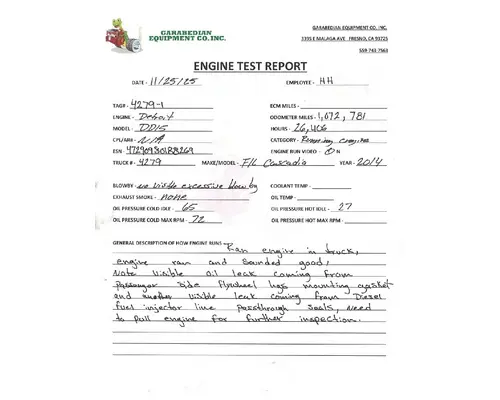 GARABEDIAN
EQUIPMENT CO. INC.
GARABEDIAN EQUIPMENT CO, INC.
3395 E MALAGA AVE FRESNO, CA 93725
559-743-7563
ENGINE TEST REPORT
DATE - 11/25/25 EMPLOYEE - HH
TAG# - 4279-1 ECM MILES -
ENGINE - Detroit ODOMETER MILES - 1,072,781
MODEL - DD15 HOURS - 26,406
CPL/AR# - N/A CATEGORY - Running complete
ESN - ENGINE RUN VIDEO - Y N
TRUCK # - 4279 MAKE/MODEL - F/L Cascadia YEAR - 2014
BLOWBY - no visible excessive blow by COOLANT TEMP -
EXHAUST SMOKE - none OIL TEMP -
OIL PRESSURE COLD IDLE - 65 OIL PRESSURE HOT IDLE - 27
OIL PRESSURE COLD MAX RPM - 72 OIL PRESSURE HOT MAX RPM -
GENERAL DESCRIPTION OF HOW ENGINE RUNS - Ran engine in truck,
engine ran and sounded good,
Note visible oil leak coming from
passenger side flywheel hsg mounting gasket
and another visible leak coming from Diesel
fuel injector line passthrough seals, need
to pull engine for further inspection.